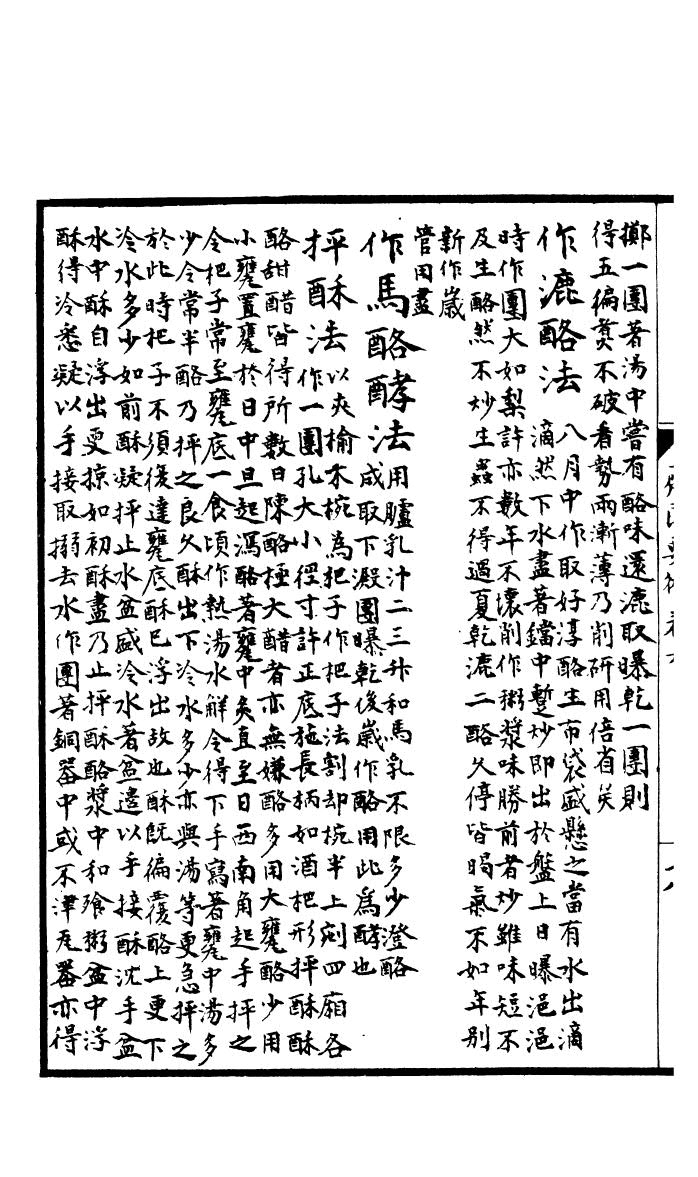 擲一團著湯中嘗有酪味還漉取曝乾一團則
得五徧煑不破看勢兩漸薄乃削研用倍省矣
作漉酪法八月中作取好淳酪生布袋盛懸之當有水出滴
滴然下水盡著鐺中蹔炒即出於盤上日曝浥浥
時作團大如梨許亦數年不壞削作粥漿味勝前者炒雖味短不
及生酪然不炒生蟲不得過夏乾漉二酪久停皆暍氣不如年別
新作歲
管用盡
作馬酪酵法用驢乳汁二三升和馬乳不限多少澄酪
成取下澱團曝乾後歲作酪用此為酵也
抨酥法以夾榆木椀為杷子作杷子法割却椀半上剜四廂各
作一團孔大小徑寸許正底施長柄如酒杷形抨酥酥
酪甜醋皆得所數日陳酪極大醋者亦無嫌酪多用大甕酪少用
小甕置甕於日中旦起瀉酪著甕中炙直至日西南角起手抨之
令杷子常至甕底一食頃作熱湯水解令得下手寫著甕中湯多
少令常半酪乃抨之良久酥出下冷水多少亦與湯等更急抨之
於此時杷子不須復達甕底酥已浮出故也酥既徧覆酪上更下
冷水多少如前酥凝抨止水盆盛冷水著盆邉以手接酥沈手盆
水中酥自浮出更掠如初酥盡乃止抨酥酪漿中和飱粥盆中浮
酥得冷悉凝以手接取搦去水作團著銅器中或不津瓦器亦得